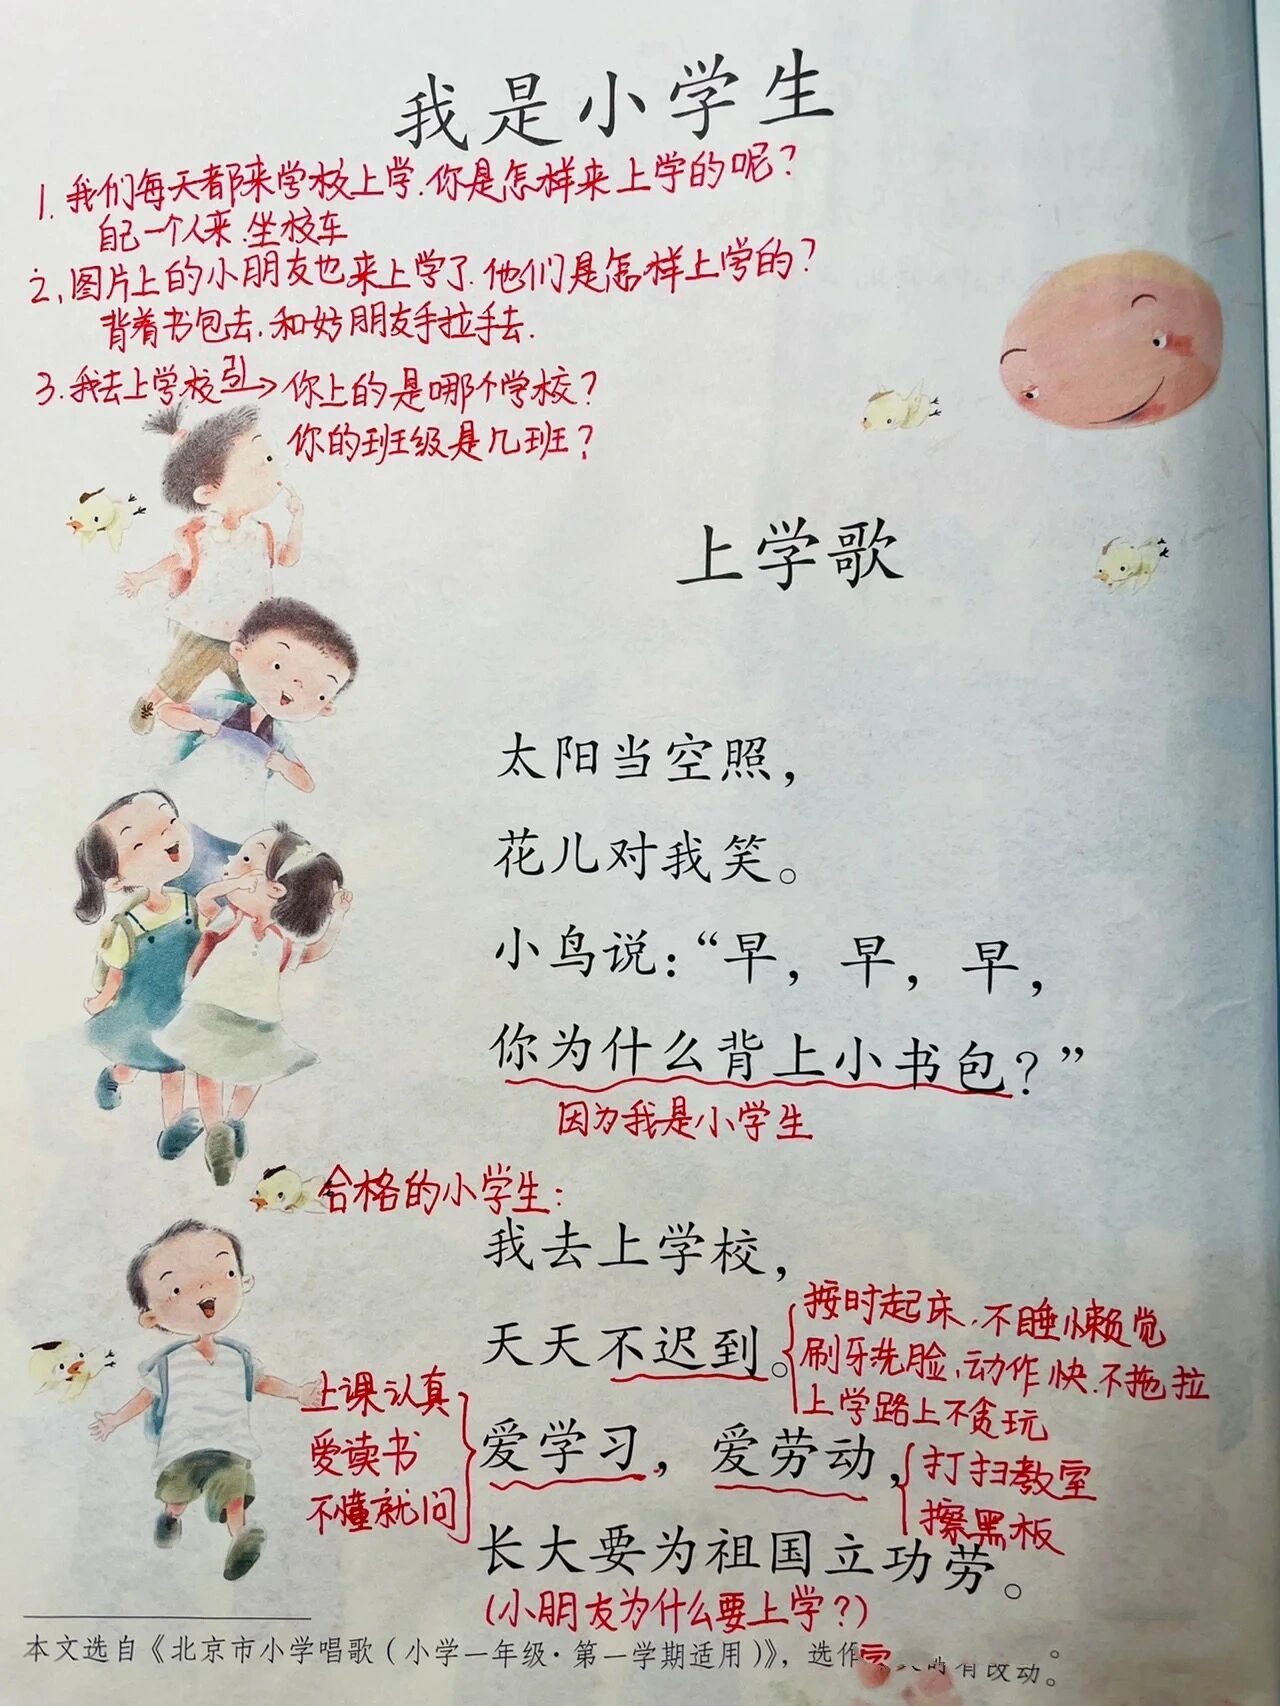 我是小学生
1.我们每天都来学校上学.你是怎样来上学的呢？
自己一个人来.坐校车
2.图片上的小朋友也来上学了.他们是怎样上学的？
背着书包去.和好朋友手拉手去.
3.我去上学校引→你上的是哪个学校？
你的班级是几班？
上学歌
太阳当空照，
花儿对我笑。
小鸟说：“早，早，早，
你为什么背上小书包？”
因为我是小学生
合格的小学生：
我去上学校，
天天不迟到。
按时起床.不睡懒觉
刷牙洗脸.动作快.不拖拉
上学路上不贪玩
上课认真
爱读书
不懂就问
爱学习，爱劳动，
打扫教室
擦黑板
长大要为祖国立功劳。
(小朋友为什么要上学？)
本文选自《北京市小学唱歌（小学一年级·第一学期适用）》，选作有改动。